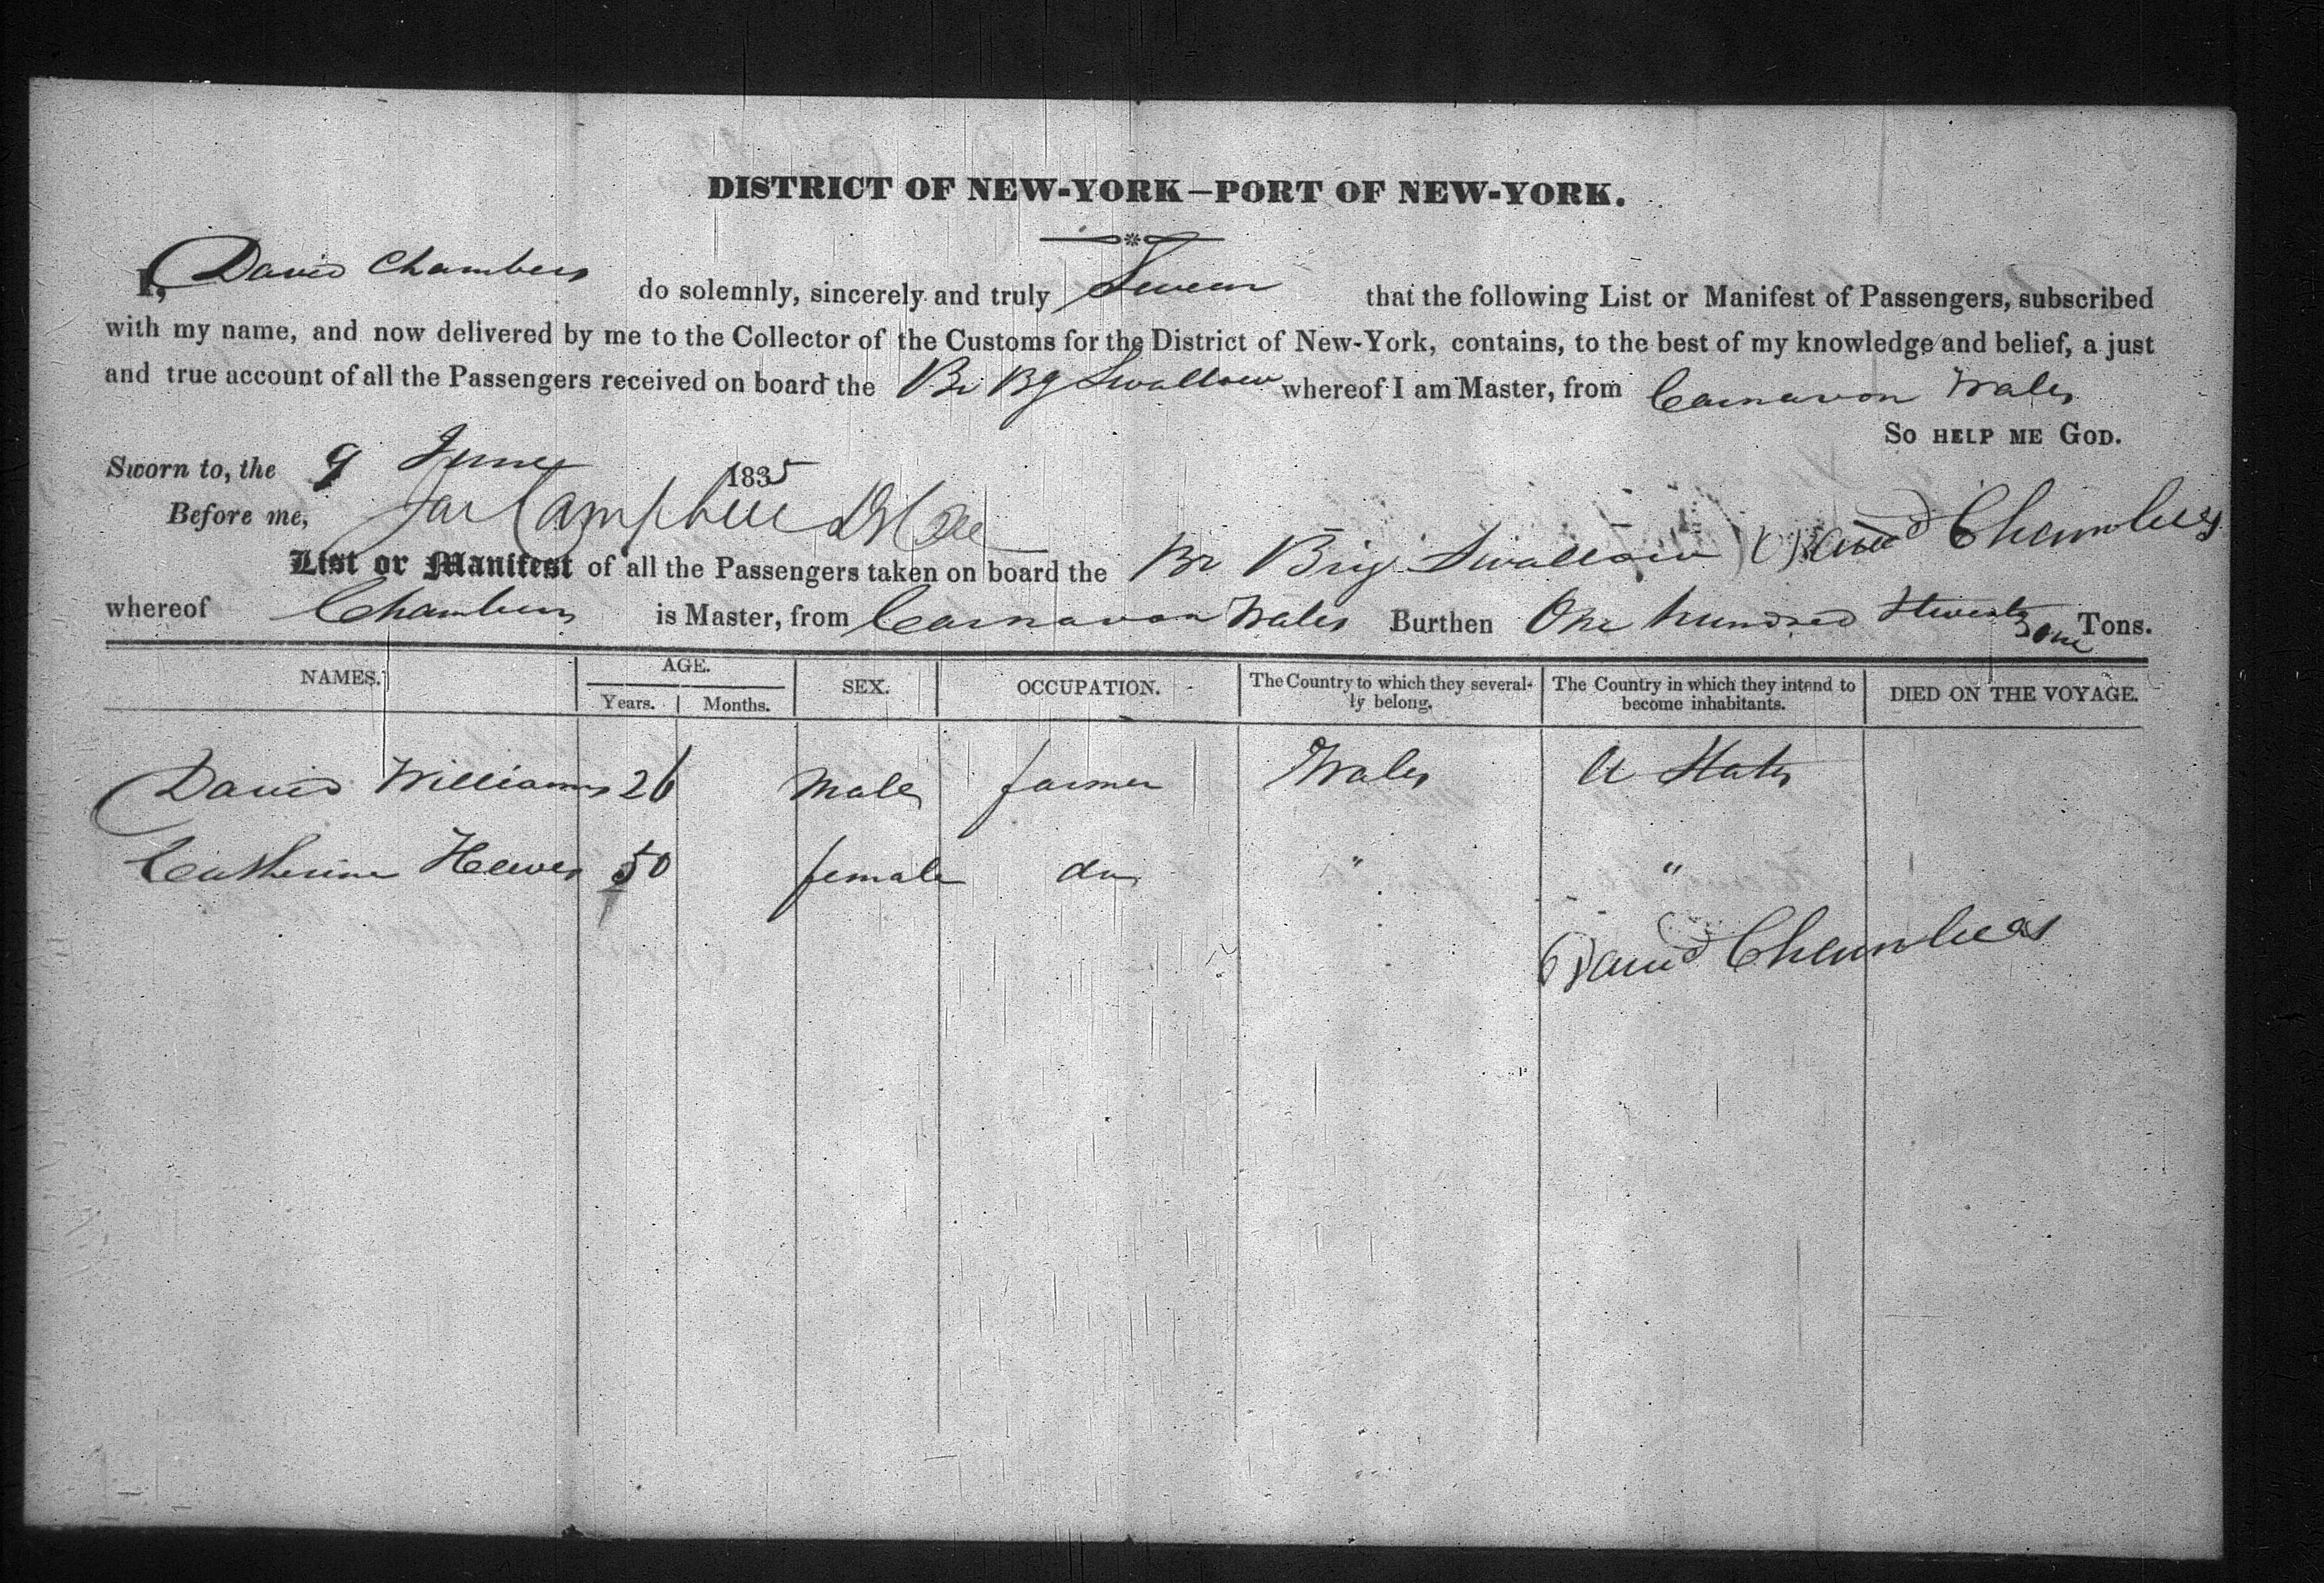 DISTRICT OF NEW-YORK—PORT OF NEW-YORK.
I, David Chambers do solemnly, sincerely and truly Swear that the following List or Manifest of Passengers, subscribed
with my name, and now delivered by me to the Collector of the Customs for the District of New-York, contains, to the best of my knowledge and belief, a just
and true account of all the Passengers received on board the Br Bg Swallow whereof I am Master, from Carnavon Wales
So HELP ME GOD.
Sworn to, the 9 June 1835
Before me, Jas Campbell David Chambers
List or Manifest of all the Passengers taken on board the Br Brig Swallow
whereof Chambers is Master, from Carnavon Wales Burthen One hundred & twenty one Tons.
NAMES. AGE. Years. Months. SEX. OCCUPATION. The Country to which they severally belong. The Country in which they intend to become inhabitants. DIED ON THE VOYAGE.
David Williams 26 Male farmer Wales U States
Catherine Hewes 50 female do " "
David Chambers